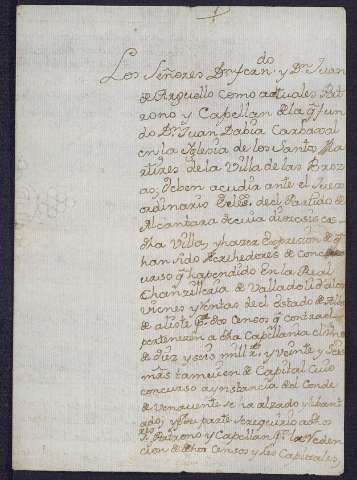 Los Señores Dn Fcando y Dn Juan
de Arguello como actuales Pat
rono y Capellan de la q fun
do Dn Juan Dabia Carbaxal
en la Iglesia de los Santos Ma
rtires de la Villa de las Broz
as, deben acudir ante el Juez
ordinario del Partido de
Alcantara de cuia diocesis es
dha Villa, y hazer Expresion de q
han sido Acrehedores de Conc
urso q ha pendido En la Real
Chanzilleria de Valladolid a los
vienes y Rentas del estado de Alva
de aliste Pr dos Censos q contra el
pertenecen a dha Capellania el uno
de diez y seis mill Rs y Veinte y Seis
mrs tamvien de Capital Cuio
concurso a ynstancia del Conde
de Venavente se ha alzado y lebant
ado, y Por parte se requirio a dhos
Patrono y Capellan Pa la Reden
cion de dhos Censos y sus Capitales,